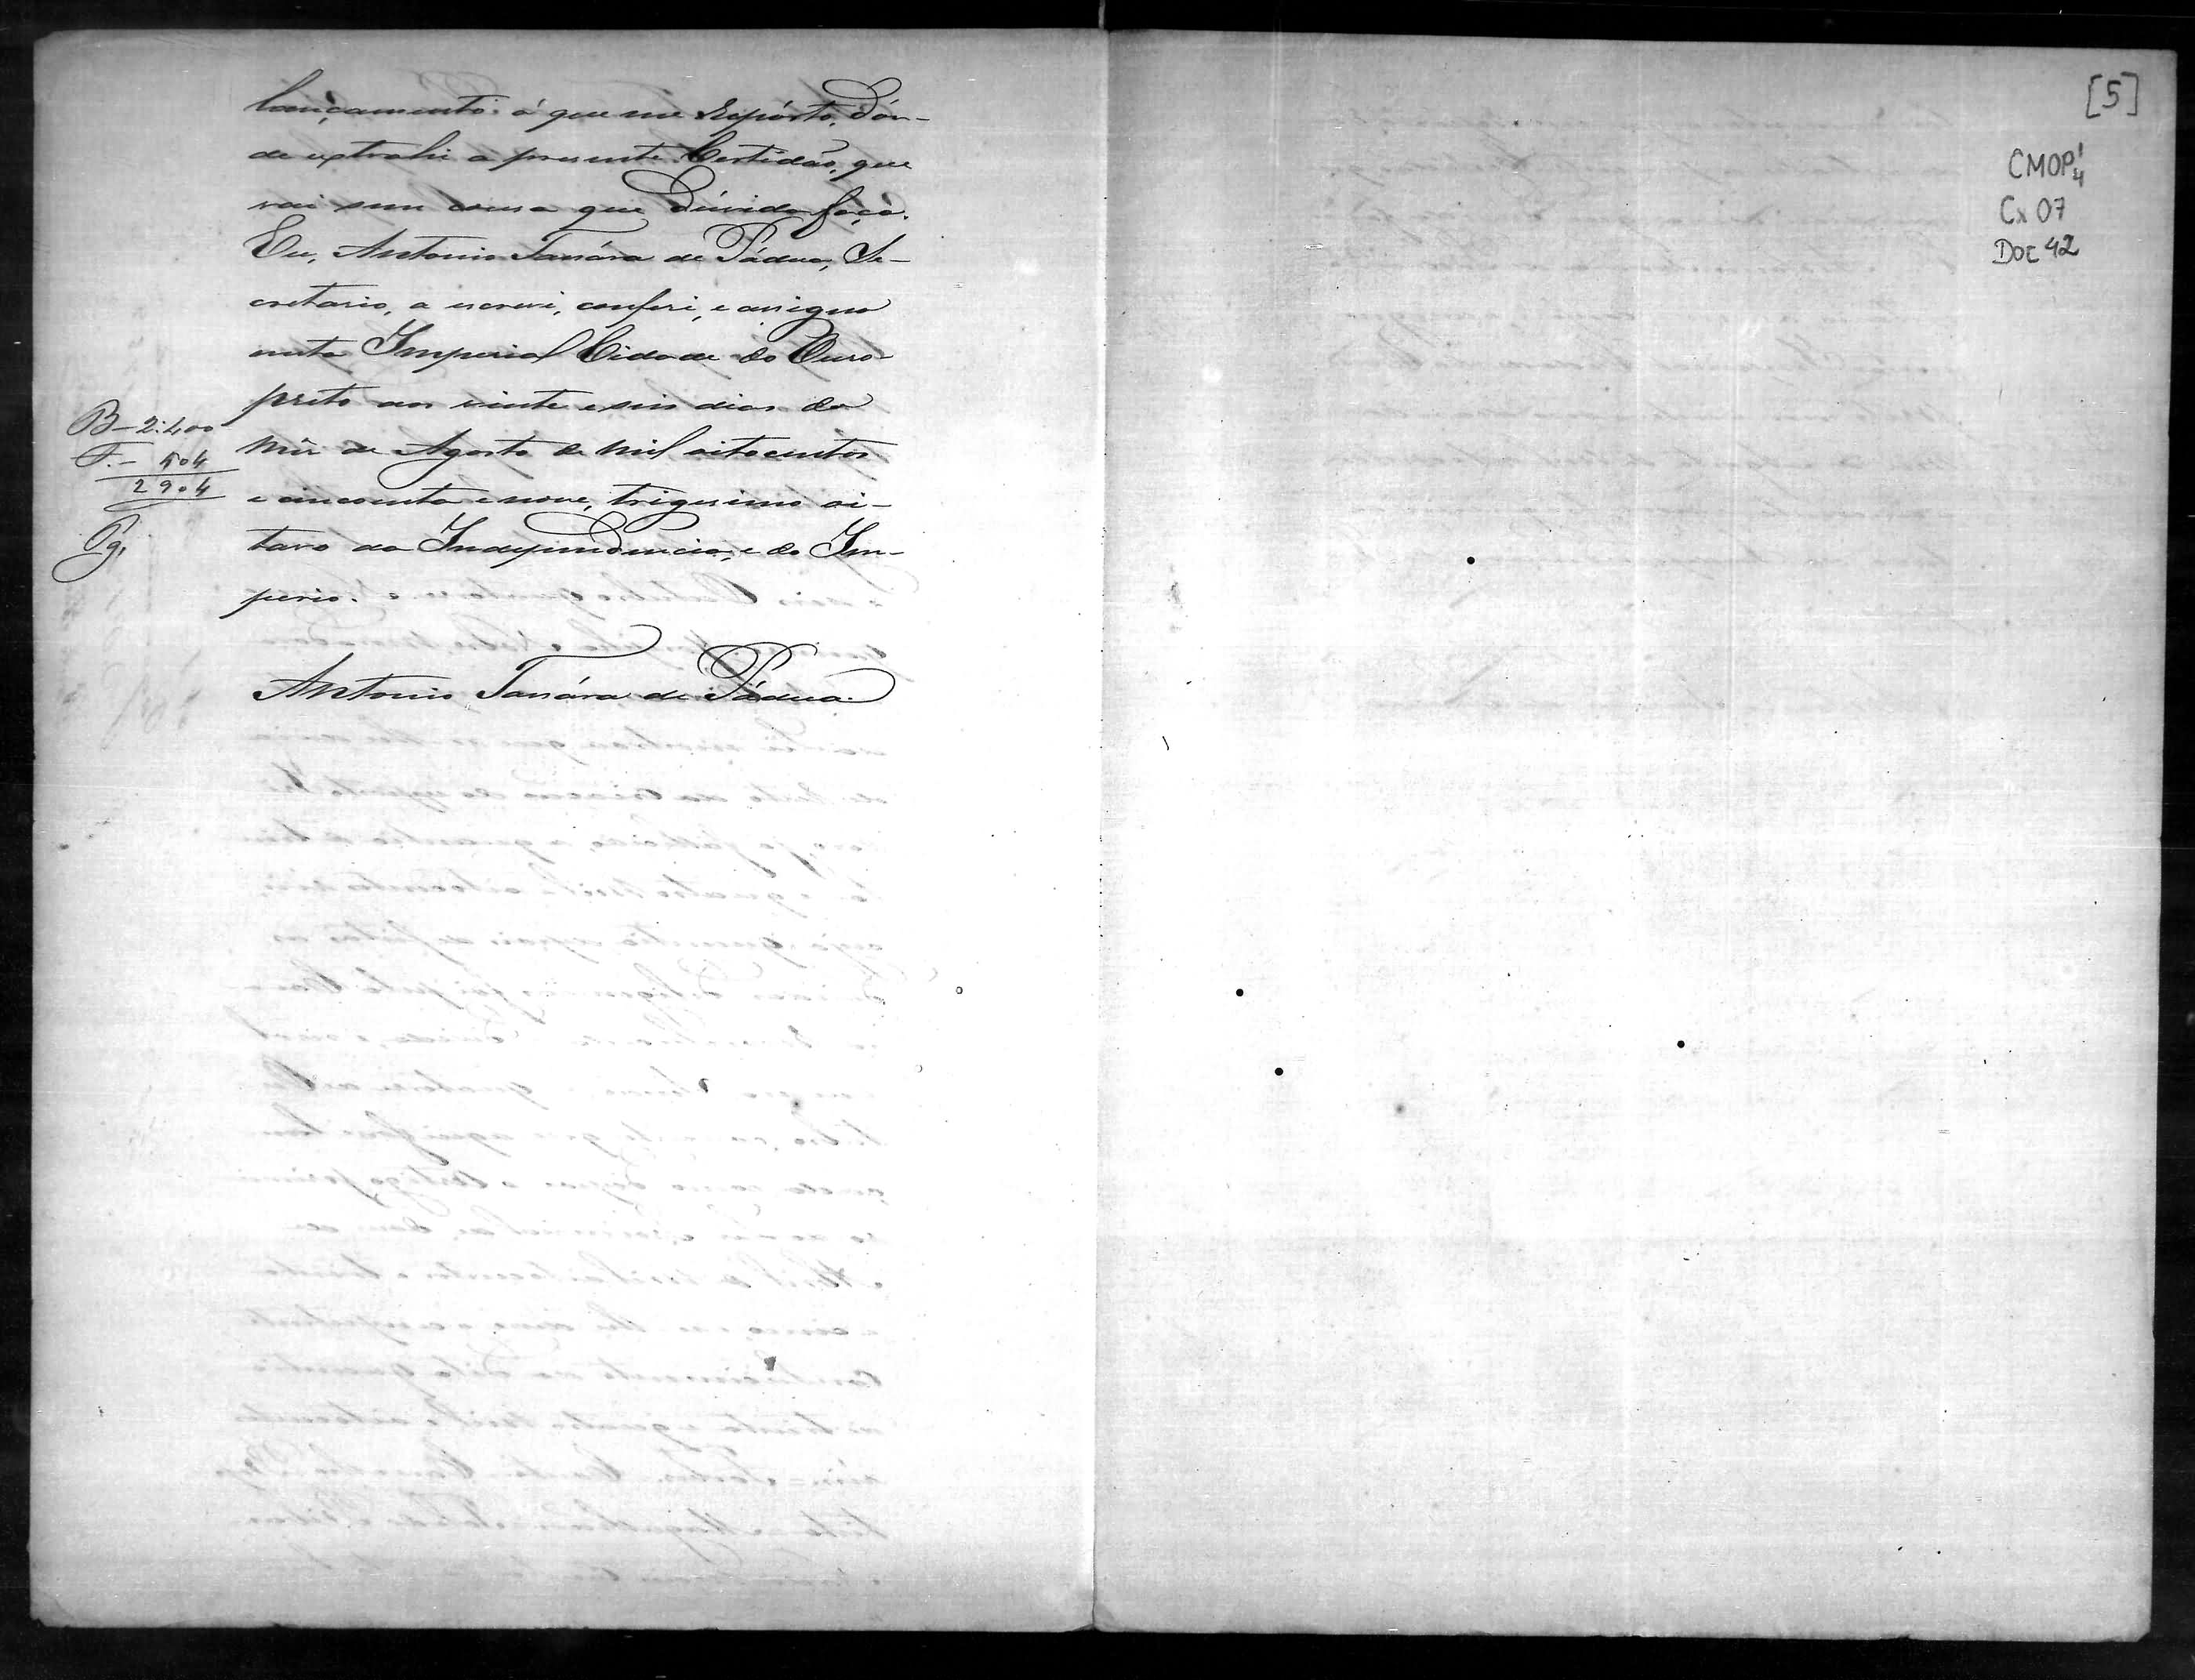 lançamento: á que me repórto, dón-
de extrahi a presente Certidão, que
vai sem cousa que dúvida faça.
Eu, Antonio Tassára de Pádua, Se-
cretario, a escrevi, conferi, e assigno
nesta Imperial Cidade do Ouro-
preto aos vinte e seis dias do
Mês de Agosto de mil oitocentos
e cincoenta e nove, trigesimo oi-
tavo da Independencia, e do Im-
perio.
Antonio Tassára de Pádua
B—2:400
F.— 504
2904
Pg,
[5]
CMOP 1/4
Cx 07
Doc 42